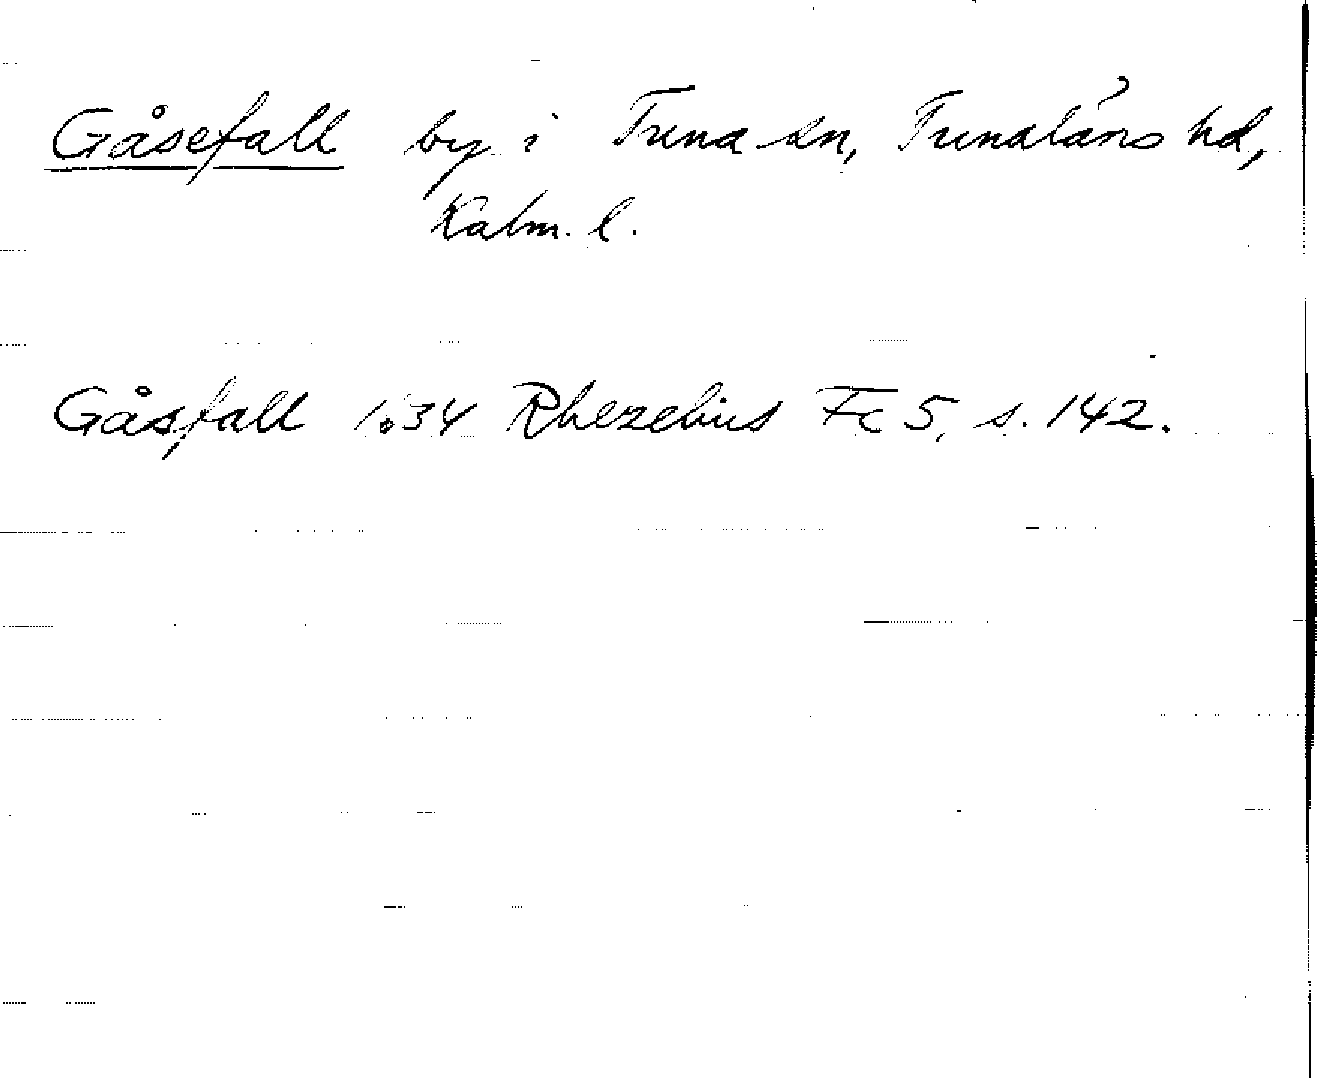 Gåsefall by i Tuna sn, Tunaläns hd,
Kalm. l.
Gåsfall 1634 Rhezelius Fc 5, s. 142.